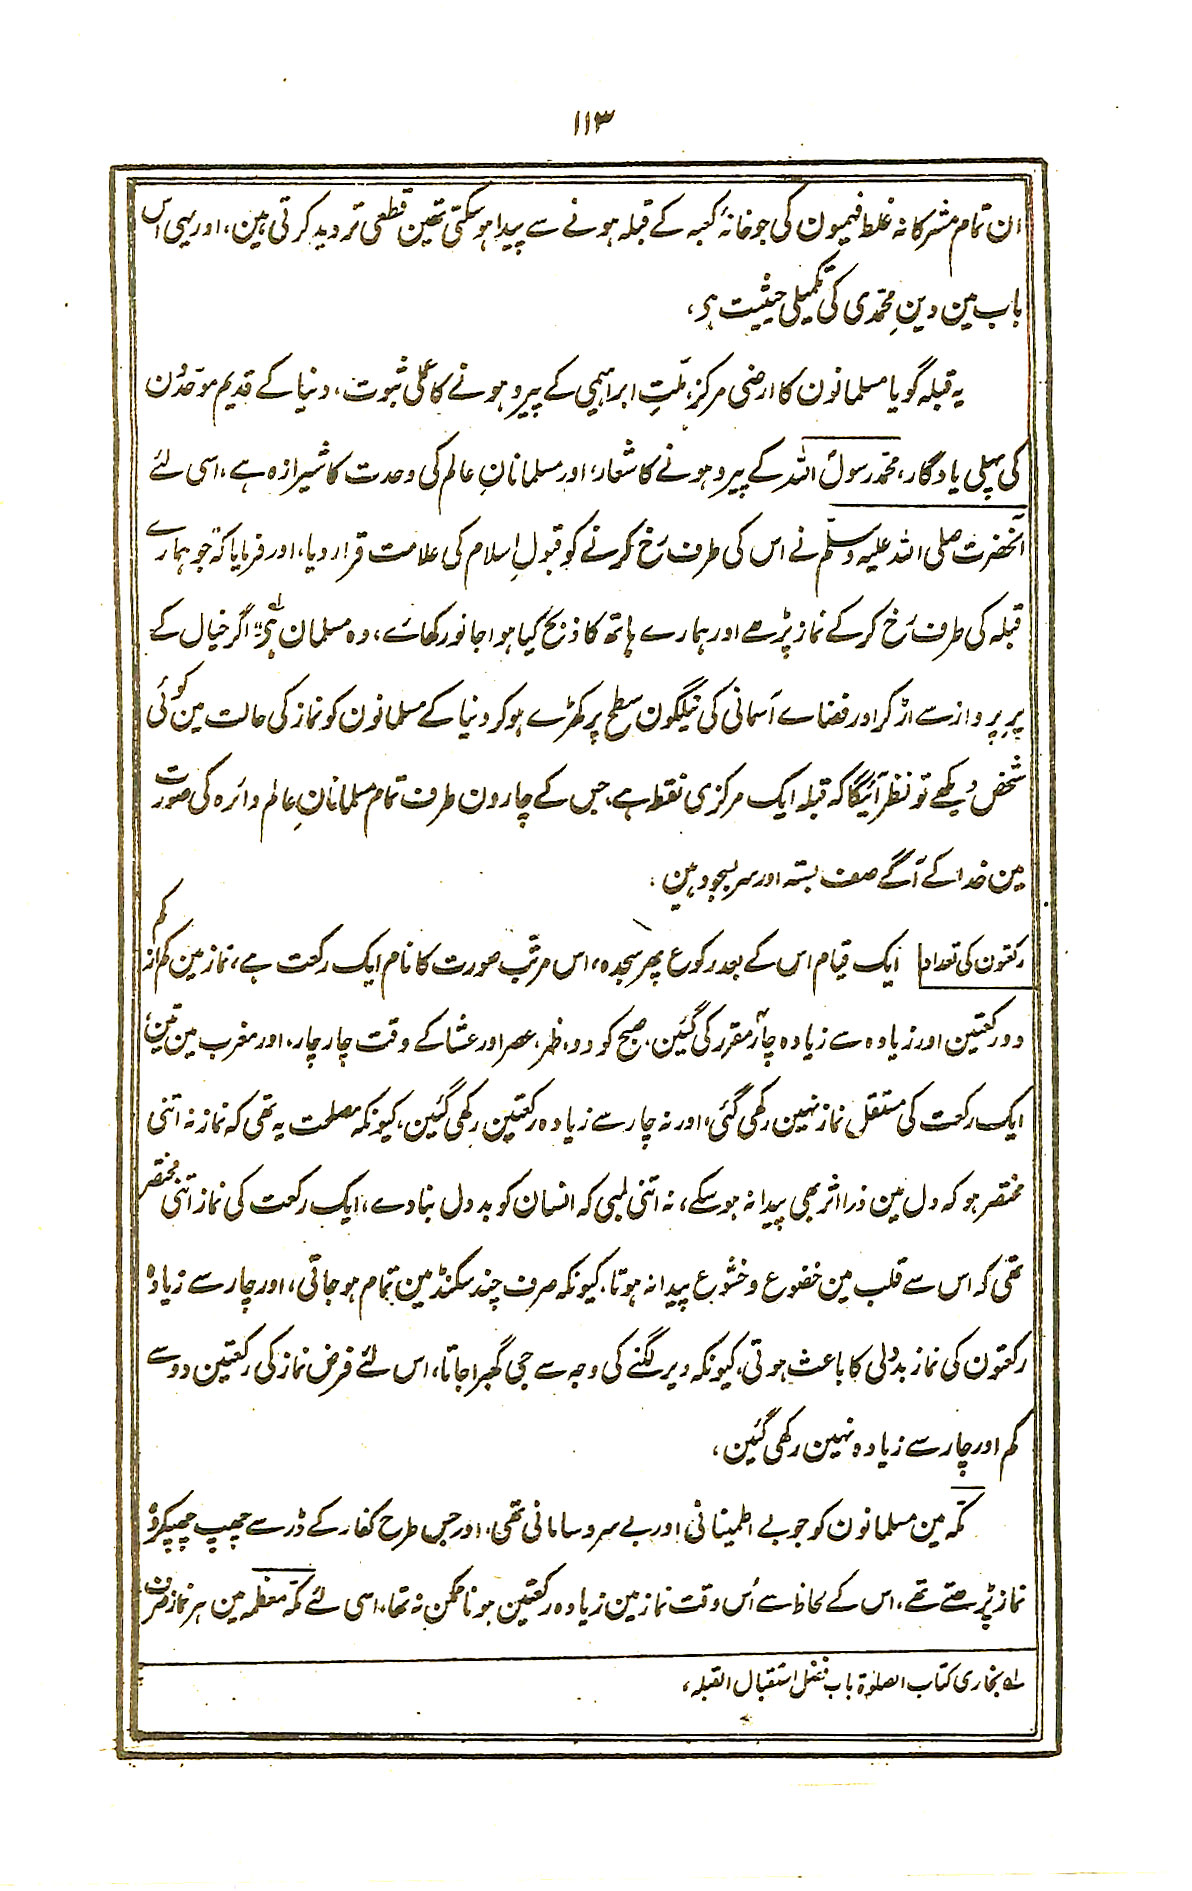 ۱۱۳
ان تمام مشرکانہ غلط فہمیون کی جو خانۂ کعبہ کے قبلہ ہونے سے پیدا ہوسکتی تھین قطعی تردید کرتی ہین، اور یہی اس
باب مین دینِ محمدی کی تکمیلی حیثیت ہی،
یہ قبلہ گویا مسلمانون کا ارضی مرکز، ملّتِ ابراہیمی کے پیرو ہونے کا عملی ثبوت، دنیا کے قدیم موحّدُن
کی پہلی یادگار، محمد رسول اللہ کے پیرو ہونے کا شعار، اور مسلمانانِ عالم کی وحدت کا شیرازہ ہے، اسی لئے
آنحضرت صلی اللہ علیہ وسلّم نے اس کی طرف رُخ کرنے کو قبولِ اسلام کی علامت قرار دیا، اور فرمایا کہ "جو ہمارے
قبلہ کی طرف رُخ کرکے نماز پڑھے اور ہمارے ہاتھ کا ذبح کیا ہوا جانور کھائے، وہ مسلمان ہی" اگر خیال کے
پرِ پرواز سے اڑ کر اور فضاے آسمانی کی نیلگون سطح پر کھڑے ہوکر دنیا کے مسلمانون کو نماز کی حالت مین کوئی
شخص دیکھے تو نظر آئیگا کہ قبلہ ایک مرکزی نقطہ ہے، جس کے چارون طرف تمام مسلمانانِ عالم دائرہ کی صورت
مین خدا کے آگے صف بستہ اور سر بسجود ہین،
رکعتون کی تعداد ایک قیام اس کے بعد رکوع پھر سجدہ، اس مرتّب صورت کا نام ایک رکعت ہے، نماز مین کم از کم
دو رکعتین اور زیادہ سے زیادہ چار مقرر کی گئین، صبح کو دو، ظہر، عصر اور عشا کے وقت چار چار، اور مغرب مین تین،
ایک رکعت کی مستقل نماز نہین رکھی گئی، اور نہ چار سے زیادہ رکعتین رکھی گئین، کیونکہ مصلحت یہ تھی کہ نماز نہ اتنی
مختصر ہو کہ دل مین ذرا اثر بھی پیدا نہ ہوسکے، نہ اتنی لمبی کہ انسان کو بددل بنا دے، ایک رکعت کی نماز اتنی مختصر
تھی کہ اس سے قلب مین خضوع و خشوع پیدا نہ ہوتا، کیونکہ صرف چند سکنڈ مین تمام ہو جاتی، اور چار سے زیادہ
رکعتون کی نماز بددلی کا باعث ہوتی، کیونکہ دیر لگنے کی وجہ سے جی گھبرا جاتا، اس لئے فرض نماز کی رکعتین دو سے
کم اور چار سے زیادہ نہین رکھی گئین،
مکّہ مین مسلمانون کو جو بے اطمینانی اور بے سروسامانی تھی، اور جس طرح کفار کے ڈر سے چھپ چھپکر وہ
نماز پڑھتے تھے، اس کے لحاظ سے اُس وقت نماز مین زیادہ رکعتین ہونا ممکن نہ تھا، اسی لئے مکّہ معظمہ مین ہر نماز صرف
لہ بخاری کتاب الصلوٰۃ باب فضل استقبال القبلہ،